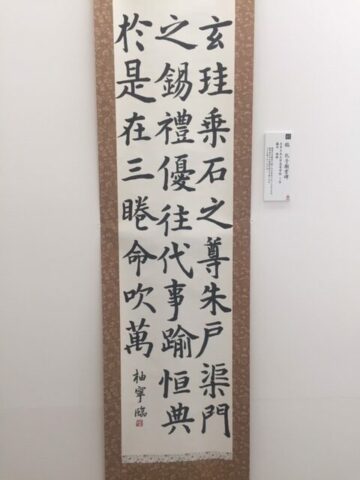 玄珪乗石之尊朱戸渠門
之錫禮優往代事踰恒典
於是在三眷命吹萬
柚寧臨
臨 孔子廟堂碑